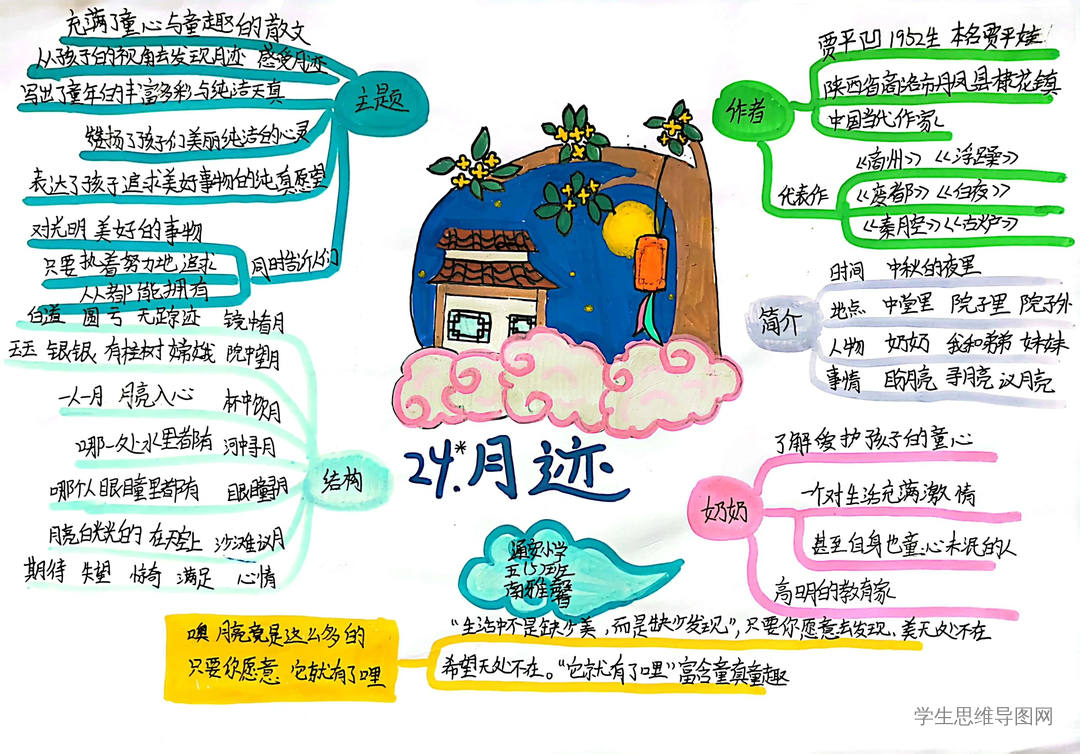 充满了童心与童趣的散文
从孩子的视角去发现月迹 感受月迹
写出了童年的丰富多彩与纯洁天真
赞扬了孩子们美丽纯洁的心灵
表达了孩子追求美好事物的纯真愿望
主题
对光明 美好的事物
只要执着努力地追求
人人都能拥有
同时告诉人们
白道 圆 亏 无踪迹 镜中看月
玉玉 银银 有桂树 嫦娥 院中望月
一人一月 月亮入心 杯中饮月
哪一处水里都有 河中寻月
哪个人眼瞳里都有 眼瞳寻月
月亮白光光的 在天空上 沙滩议月
期待 失望 惊奇 满足 心情
结构
24.*月迹
通安小学
五(5)班
南雅馨
作者
贾平凹 1952生 本名贾平娃
陕西省商洛市丹凤县棣花镇
中国当代作家
代表作
《商州》 《浮躁》
《废都》 《白夜》
《秦腔》 《古炉》
简介
时间 中秋的夜里
地点 中堂里 院子里 院子外
人物 奶奶 我和弟弟 妹妹
事情 盼月亮 寻月亮 议月亮
奶奶
了解 爱护孩子们的童心
一个对生活充满激情
甚至自身也童心未泯的人
高明的教育家
噢 月亮竟是这么多的
只要你愿意 它就有了哩
“生活中不是缺少美，而是缺少发现”，只要你愿意去发现，美无处不在
希望无处不在。“它就有了哩”富含童真童趣
学生思维导图网